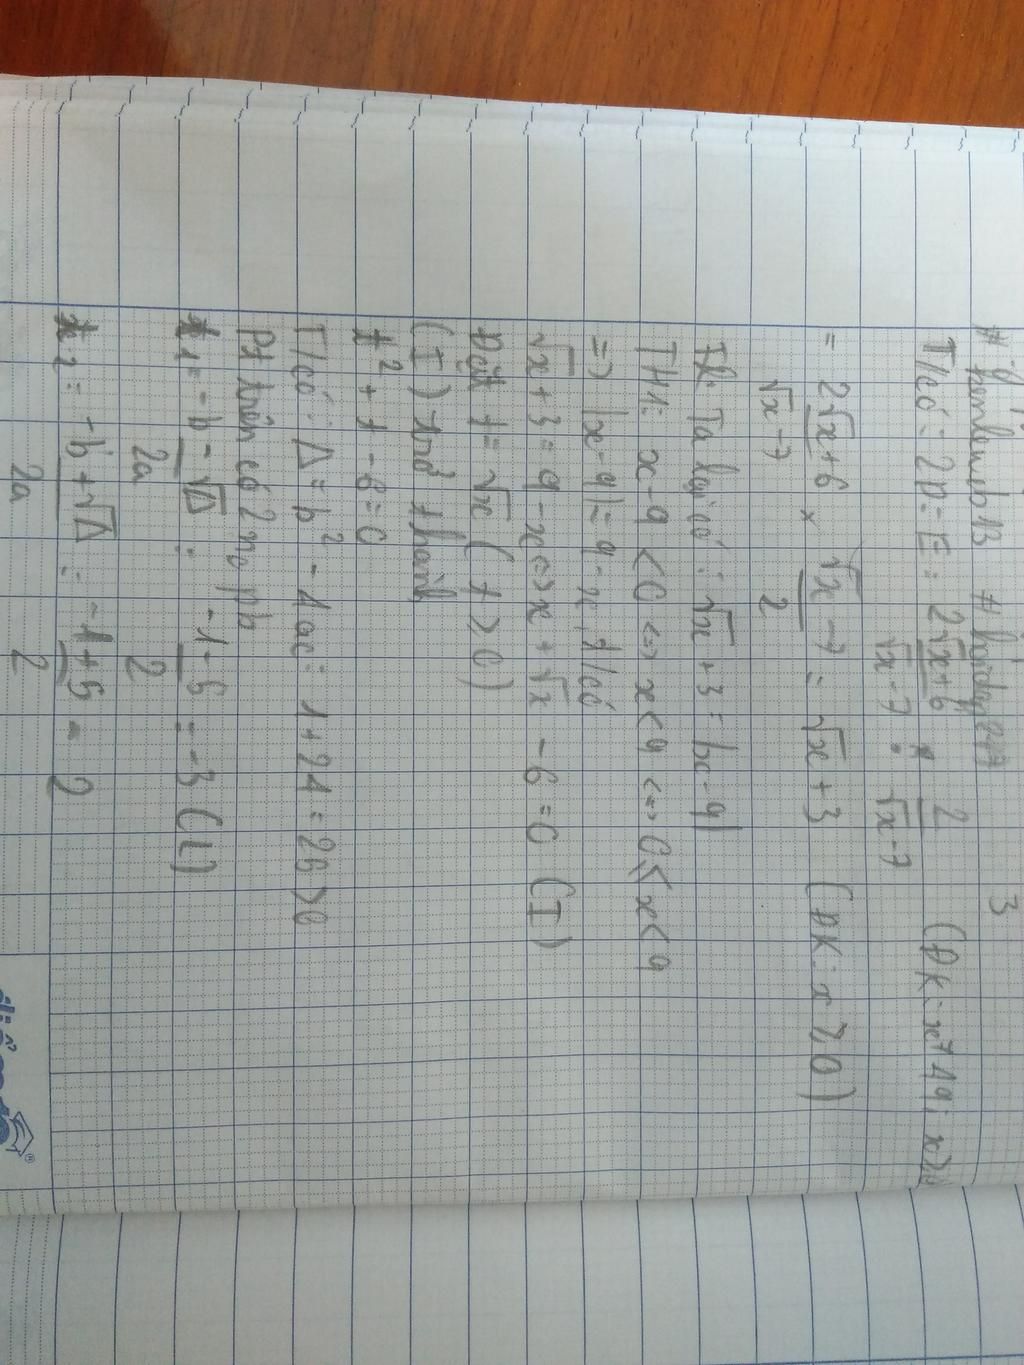 3
T/có: 2P = E = 2√x+6 / √x-7 : 2 / √x-7 (ĐK: x≠49; x≥0)
= 2√x+6 / √x-7 × √x-7 / 2 = √x+3 (ĐK: x≥0)
Ta lại có: √x+3 = |x-9|
TH1: x-9<0 <=> x<9 <=> 0≤x<9
=> |x-9| = 9-x, t/có
√x+3 = 9-x <=> x+√x-6=0 (I)
Đặt t=√x (t>0)
(I) trở thành
t²+t-6=0
T/có: Δ=b²-4ac = 1+24=25>0
Pt trên có 2 no pb
t1 = -b-√Δ / 2a = -1-5 / 2 = -3 (L)
t2 = -b+√Δ / 2a = -1+5 / 2 = 2